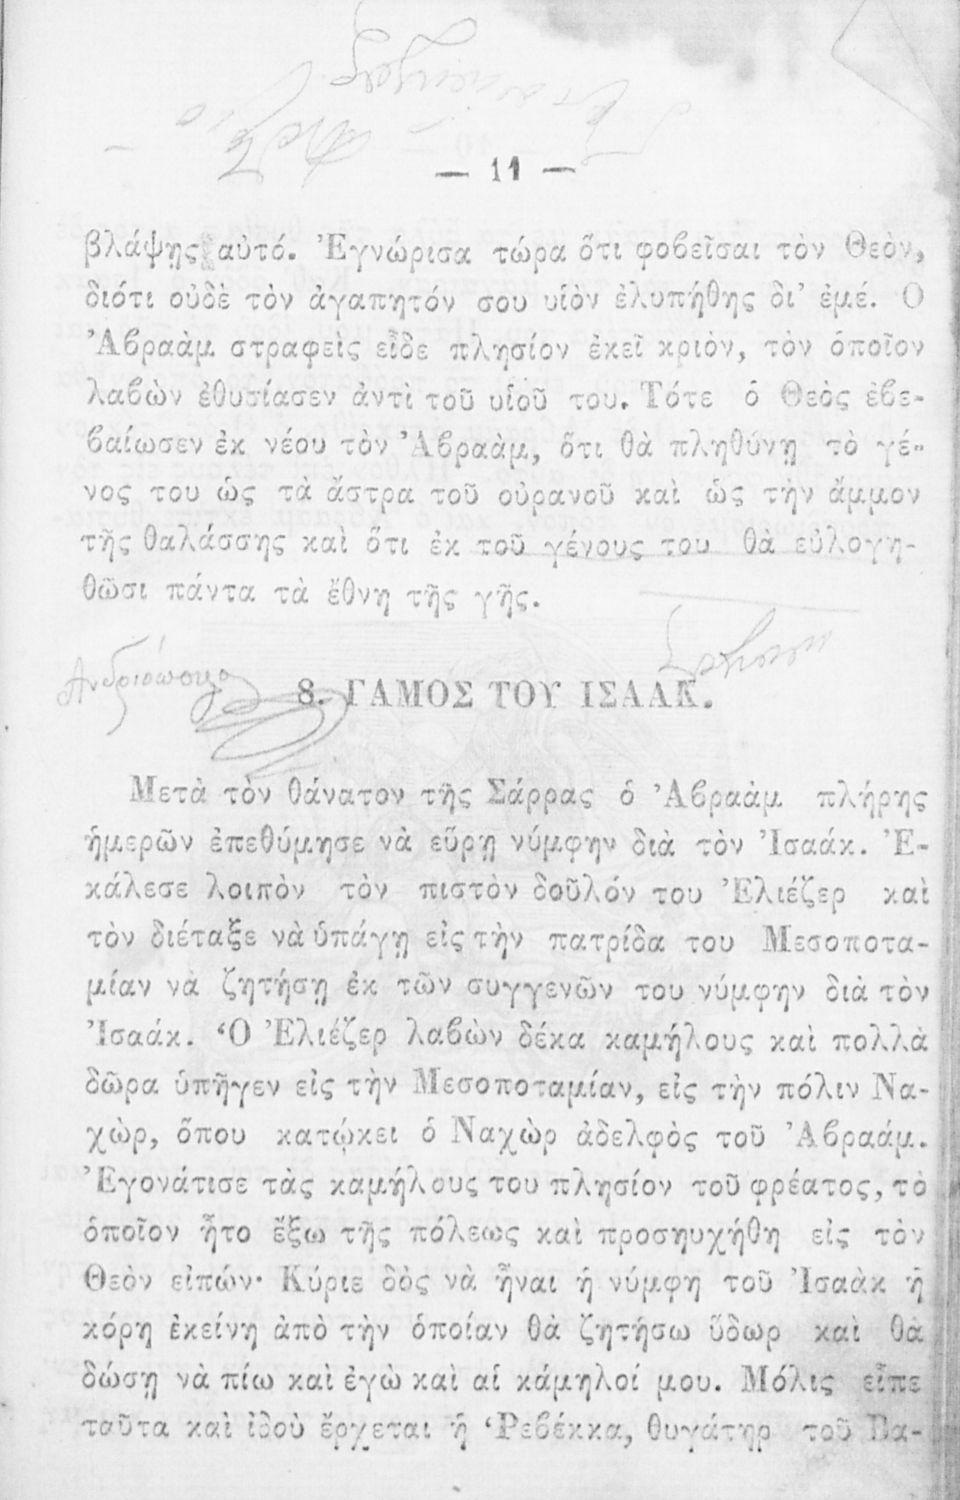 — 11 —
βλάψῃς αὐτό. Ἐγνώρισα τώρα ὅτι φοβεῖσαι τὸν Θεὸν,
διότι οὐδὲ τὸν ἀγαπητόν σου υἱὸν ἐλυπήθης δι' ἐμέ. Ὁ
Ἀβραὰμ στραφεὶς εἶδε πλησίον ἐκεῖ κριὸν, τὸν ὁποῖον
λαβὼν ἐθυσίασεν ἀντὶ τοῦ υἱοῦ του. Τότε ὁ Θεὸς ἐβε-
βαίωσεν ἐκ νέου τὸν Ἀβραὰμ, ὅτι θὰ πληθύνῃ τὸ γέ-
νος του ὡς τὰ ἄστρα τοῦ οὐρανοῦ καὶ ὡς τὴν ἄμμον
τῆς θαλάσσης καὶ ὅτι ἐκ τοῦ γένους του θὰ εὐλογη-
θῶσι πάντα τὰ ἔθνη τῆς γῆς.
8. ΓΑΜΟΣ ΤΟΥ ΙΣΑΑΚ.
Μετὰ τὸν θάνατον τῆς Σάρρας ὁ Ἀβραὰμ πλήρης
ἡμερῶν ἐπεθύμησε νὰ εὕρῃ νύμφην διὰ τὸν Ἰσαάκ. Ἐ-
κάλεσε λοιπὸν τὸν πιστὸν δοῦλόν του Ἐλιέζερ καὶ
τὸν διέταξε νὰ ὑπάγῃ εἰς τὴν πατρίδα του Μεσοποτα-
μίαν νὰ ζητήσῃ ἐκ τῶν συγγενῶν του νύμφην διὰ τὸν
Ἰσαάκ. Ὁ Ἐλιέζερ λαβὼν δέκα καμήλους καὶ πολλὰ
δῶρα ὑπῆγεν εἰς τὴν Μεσοποταμίαν, εἰς τὴν πόλιν Να-
χὼρ, ὅπου κατῴκει ὁ Ναχὼρ ἀδελφὸς τοῦ Ἀβραάμ.
Ἐγονάτισε τὰς καμήλους του πλησίον τοῦ φρέατος, τὸ
ὁποῖον ἦτο ἔξω τῆς πόλεως καὶ προσηυχήθη εἰς τὸν
Θεὸν εἰπών· Κύριε δὸς νὰ ἦναι ἡ νύμφη τοῦ Ἰσαὰκ ἡ
κόρη ἐκείνη ἀπὸ τὴν ὁποίαν θὰ ζητήσω ὕδωρ καὶ θὰ
δώσῃ νὰ πίω καὶ ἐγὼ καὶ αἱ κάμηλοί μου. Μόλις εἶπε
ταῦτα καὶ ἰδοὺ ἔρχεται ἡ Ῥεβέκκα, θυγάτηρ τοῦ Βα-